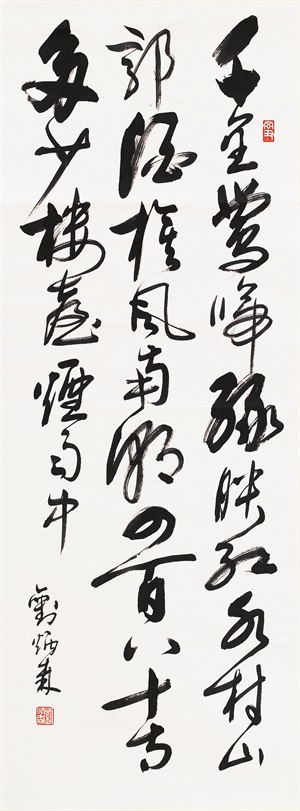 千里鶯啼綠映紅水村山
郭酒旗風南朝四百八十寺
多少樓臺煙雨中
劉炳森